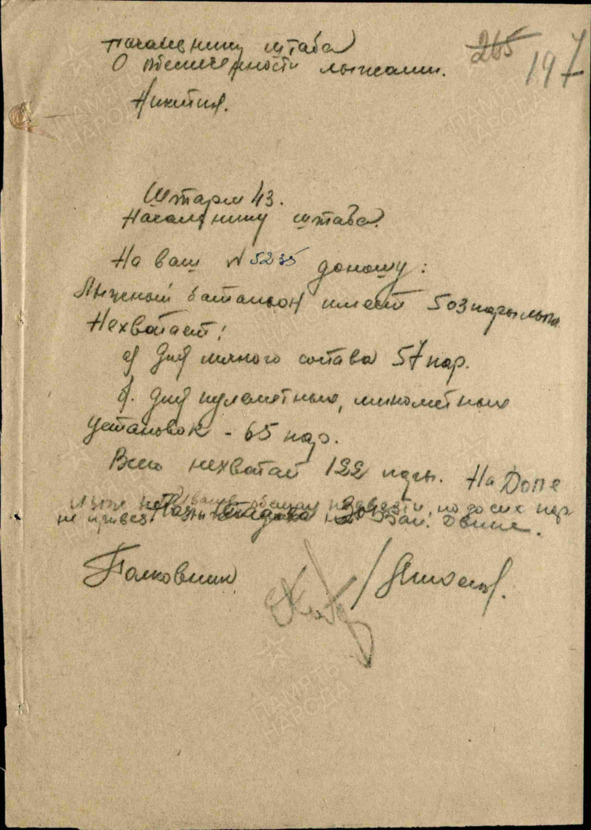 265
197
начальнику штаба
О обеспеченности лыжами.
Никитин.
Штарм 43.
Начальнику штаба.
На ваш № 5235 доношу:
Лыжный батальон имеет 503 пары лыж
Нехватает:
а) для личного состава 57 пар.
б. для пулеметных, минометных
установок - 65 пар.
Всего нехватает 122 пары. На Допе
лыж нет обещал привезти, но до сих пор
не привез
Полковник
ПАМЯТЬ НАРОДА